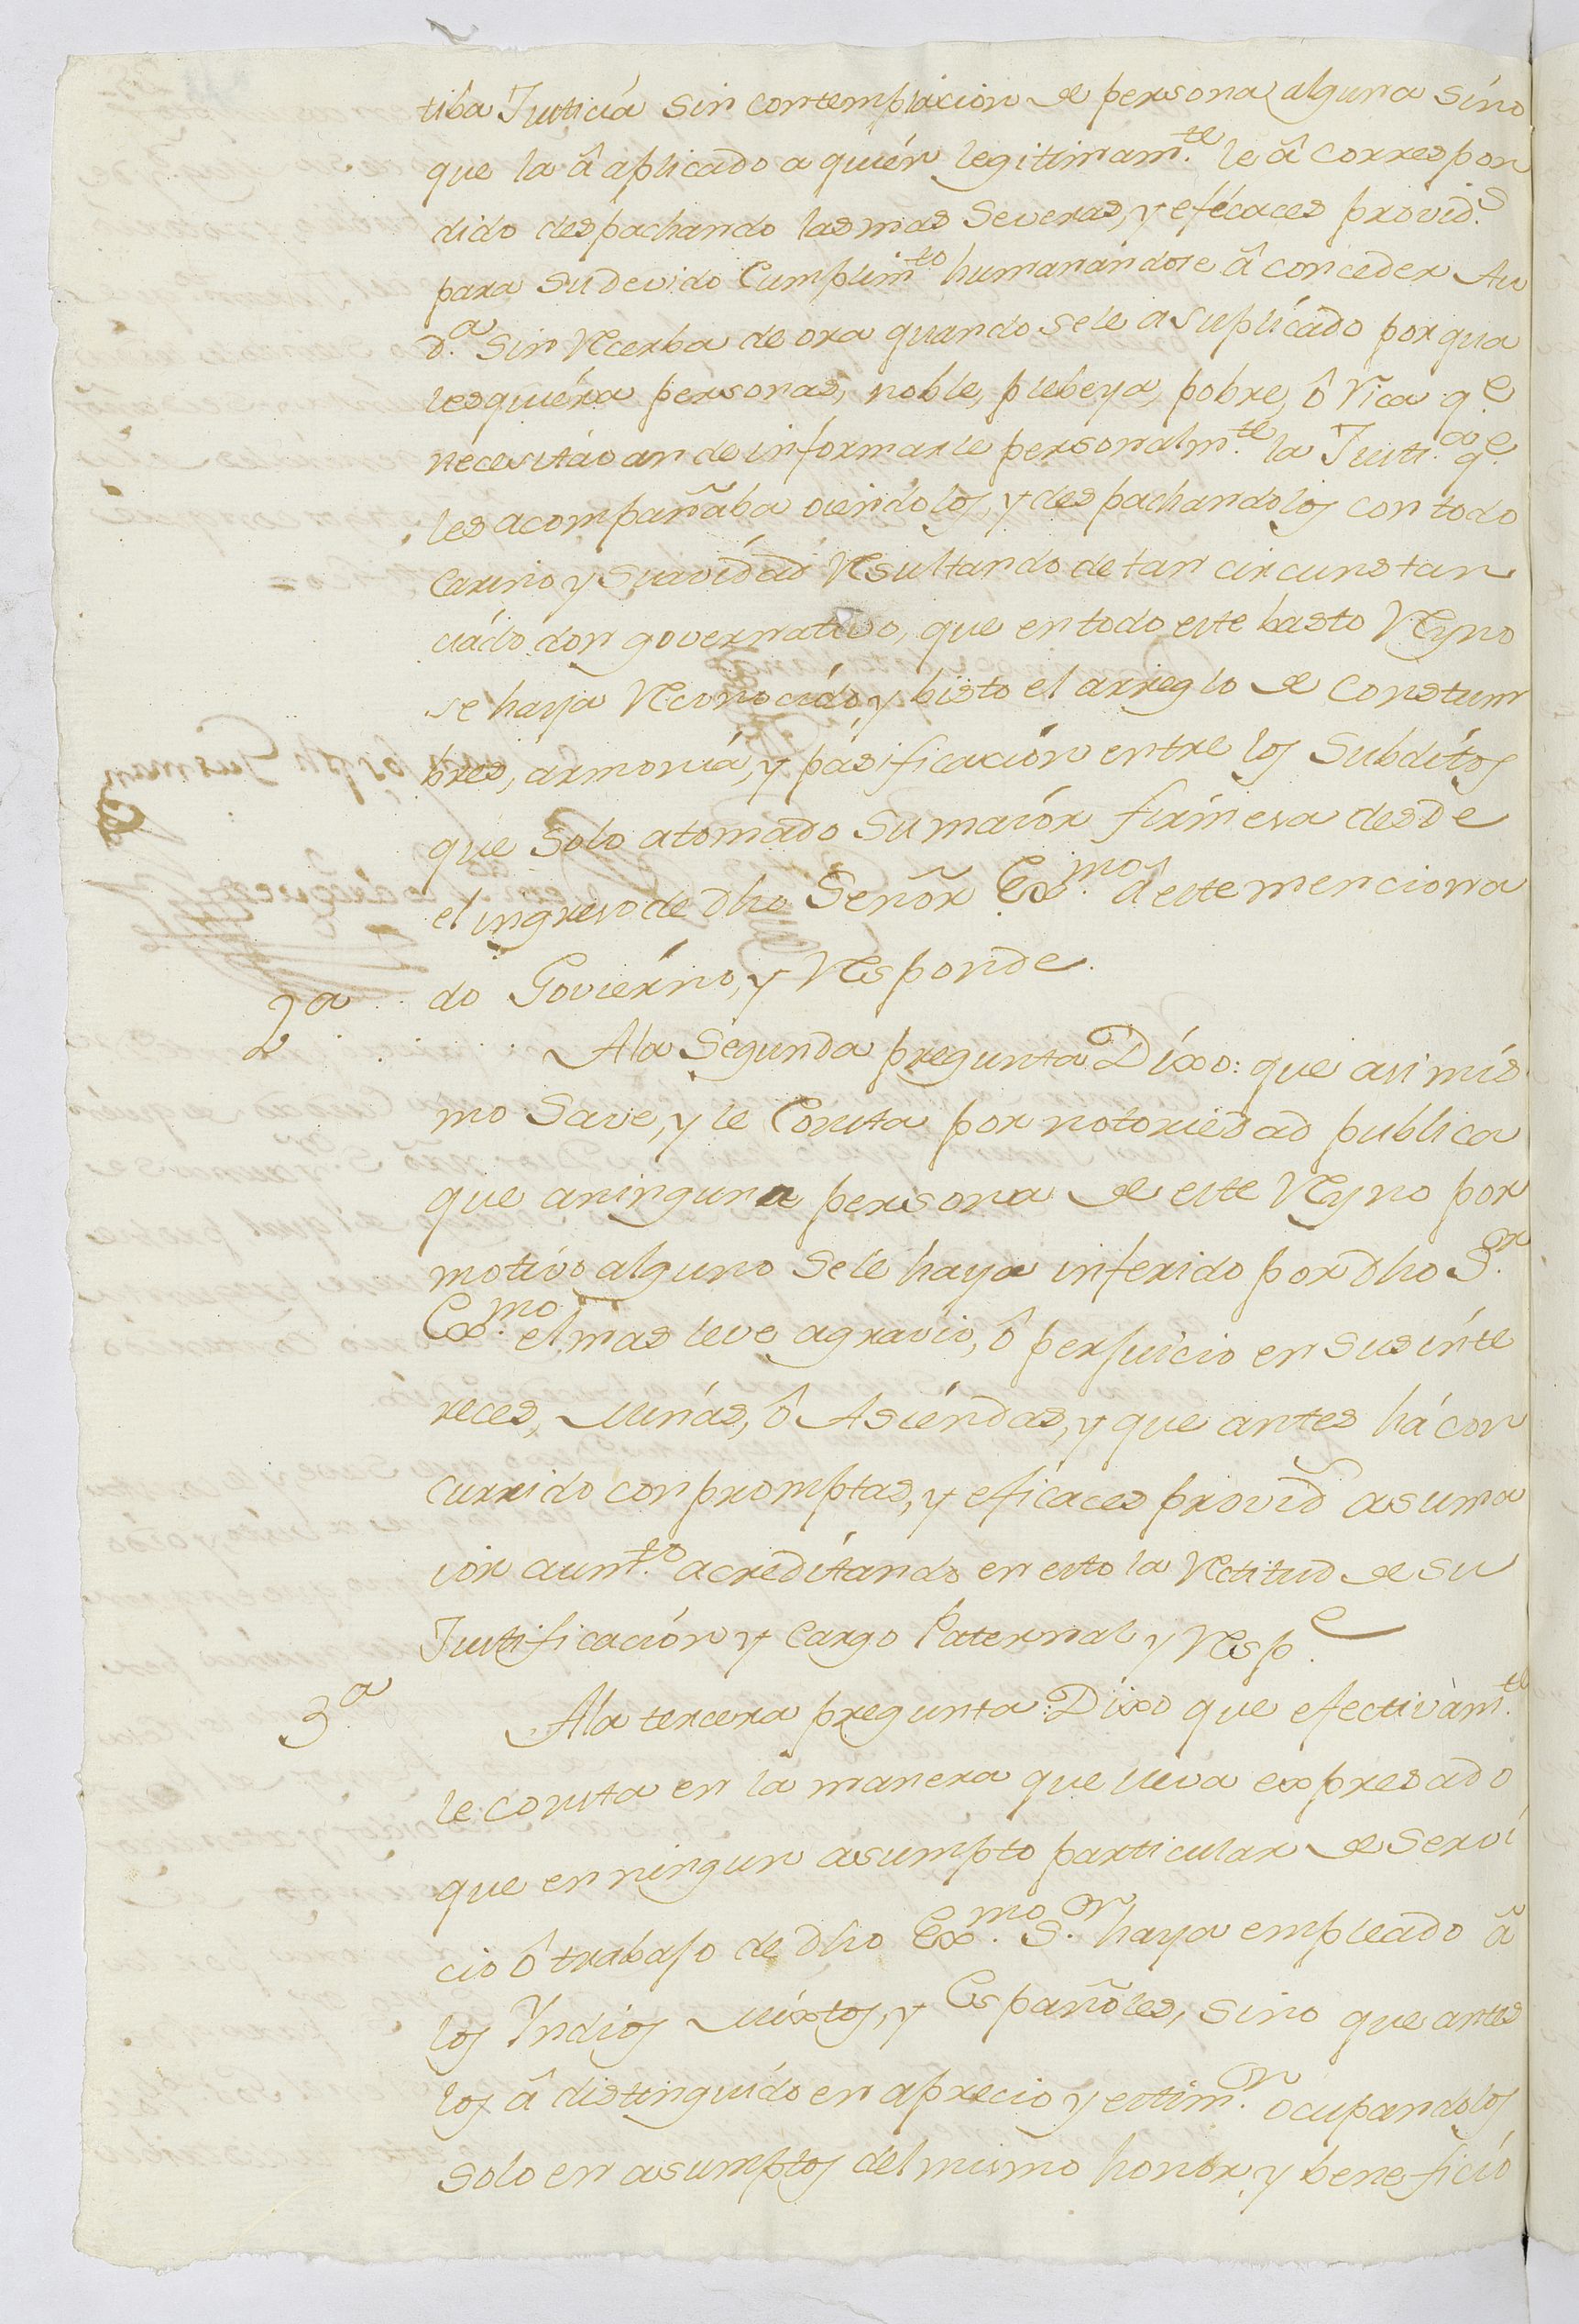 tiba Justicia sin contemplacion de persona alguna sino
que la â aplicado a quien legitimam.te le â correspon
dido despachando las mas severas, y eficaces provid.s
para su devido Cumplim.to humanandose â conceder Au
d.a sin Recerba de ora quando sele a suplicado por qua
lesquiera personas, noble, plebeya, pobre, ô Rica q.e
necesitavan de informarle personalm.te la Justi.a q.e
les acompañaba oiendolos, y despachandolos con todo
Carino y suavidad Resultando de tan circunstan
ciado don governativo, que en todo este basto Reyno
se haya Reconocido, y bisto el arreglo de Constum
bres, armonia, y pasificacion entre los Subditos
que solo a tomado su maior firmesa desde
el ingreso de dho Señor Ex.mo â este menciona
do Govierno, y Responde.
2a Ala Segunda pregunta Dixo: que asi mis
mo Save, y le Consta por notoriedad publica
que aninguna persona de este Reyno por
motivo alguno sele haya inferido por dho S.or
Ex.mo el mas leve agravio, ô perjuicio en sus inte
reces, Minas, ô Asiendas, y que antes há con
currido con promptas, y eficaces provid.s a su ma
ior aum.to acreditando en esto la Rectitud de su
Justificacion y Cargo Paternal y Resp.e
3.a Ala tercera pregunta: Dixo que efectivam.te
le consta en la manera que lleva expresado
que en ningun asumpto particular de servi
cio ô trabajo de dho Ex.mo S.or haya empleado â
los Yndios Mixtos, y Españoles, sino que antes
los â distinguido en aprecio y estim.on ocupandolos
solo en asumptos del mismo honor, y beneficio